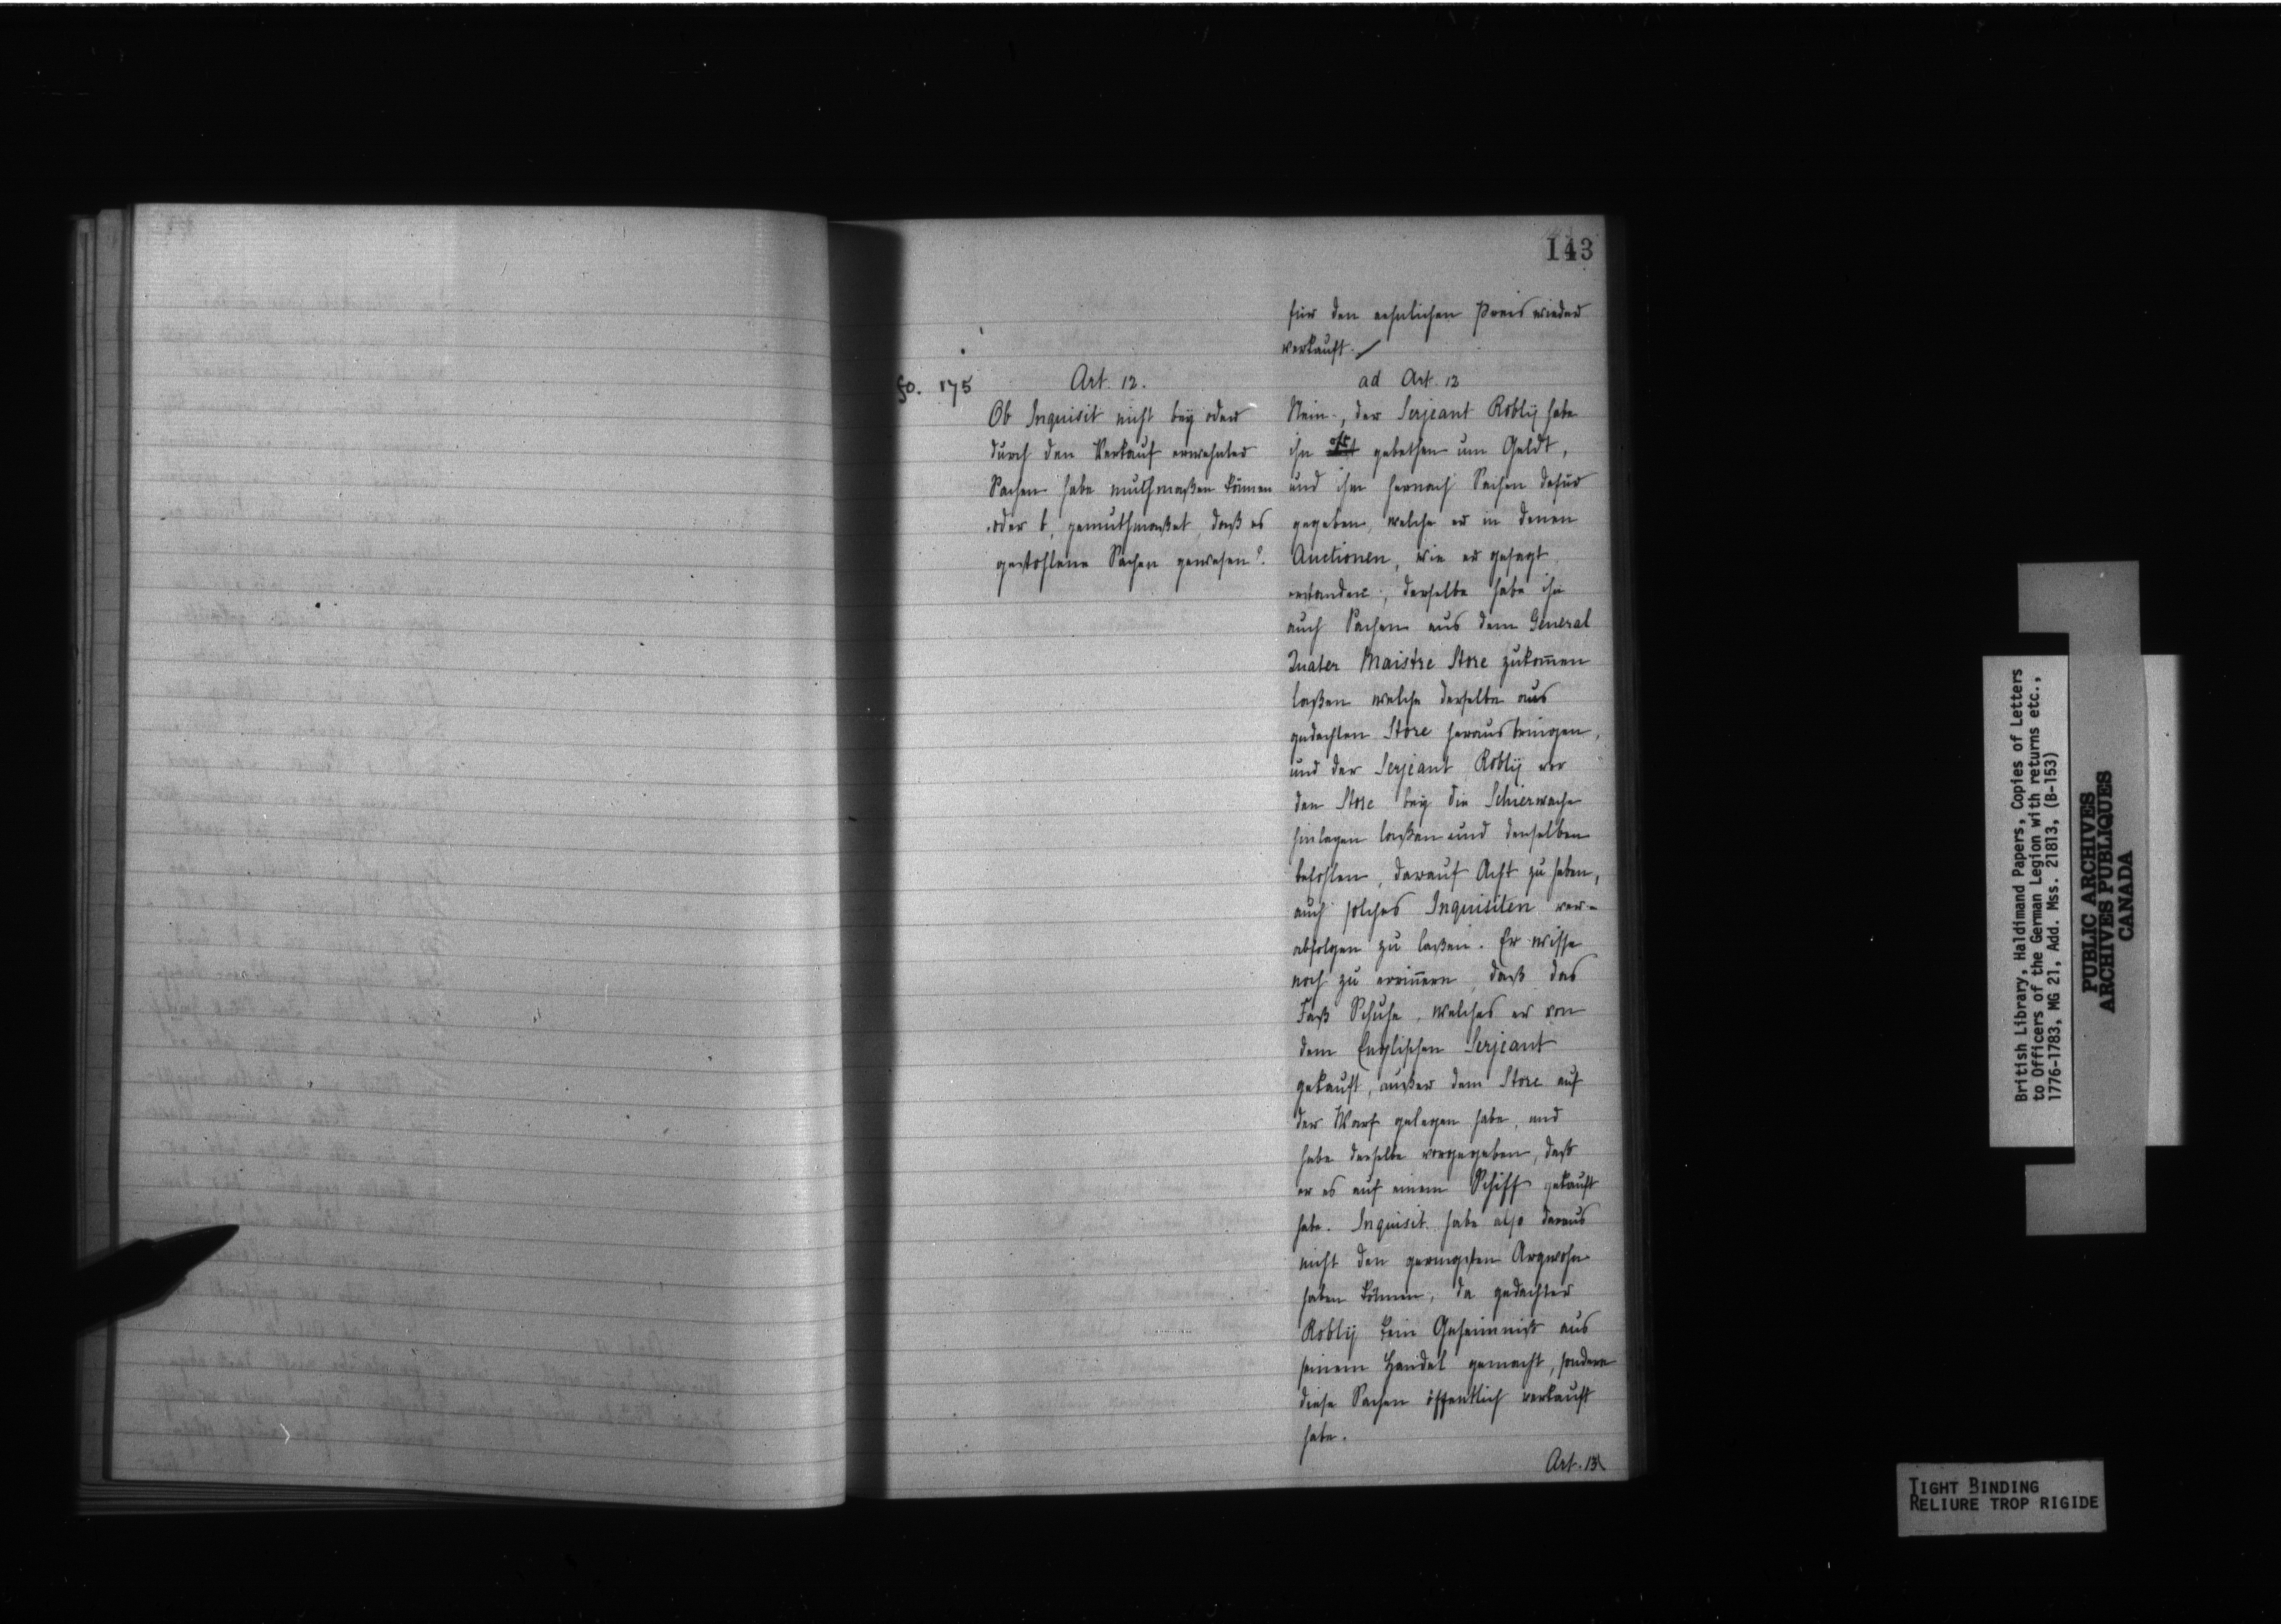 143
für den ersteren Preis wieder
verkauft.
fo. 175
Art. 12.
Ob Inquisit nicht bey oder
durch den Verkauf erwehnter
Sachen habe muthmaßen können
oder b, gemuthmaßet, daß es
gestohlene Sachen gewesen?
ad Art. 12
Nein, der Serjeant Robly habe
ihn oft gebethen um Geldt,
und ihm hernach Sachen dafür
gegeben, welche er in denen
Auctionen, wie er gesagt
erstanden, derselbe habe ihn
auch Sachen aus dem General
Quater Maistre Store zukommen
laßen welche derselbe aus
gedachten Store heraus bringen,
und der Serjeant Robly vor
den Store bey die Schierwache
hinlegen laßen und derselben
befohlen, darauf Acht zu haben,
auch solches Inquisiten ver-
abfolgen zu laßen. Er wisse
noch zu erinnern, daß das
Faß Schuhe, welches er von
dem Englischen Serjeant
gekauft, außer dem Store auf
der Warf gelegen habe, und
habe derselbe vorgegeben, daß
er es auf einem Schiff gekauft
habe. Inquisit habe also daraus
nicht den geringsten Argwohn
haben können, da gedachter
Robly kein Geheimniß aus
seinem Handel gemacht, sondern
diese Sachen öffentlich verkauft
habe.
Art. 13
British Library, Haldimand Papers, Copies of Letters
to Officers of the German Legion with returns etc.,
1776-1783, MG 21, Add. Mss. 21813, (B-153)
PUBLIC ARCHIVES
ARCHIVES PUBLIQUES
CANADA
TIGHT BINDING
RELIURE TROP RIGIDE